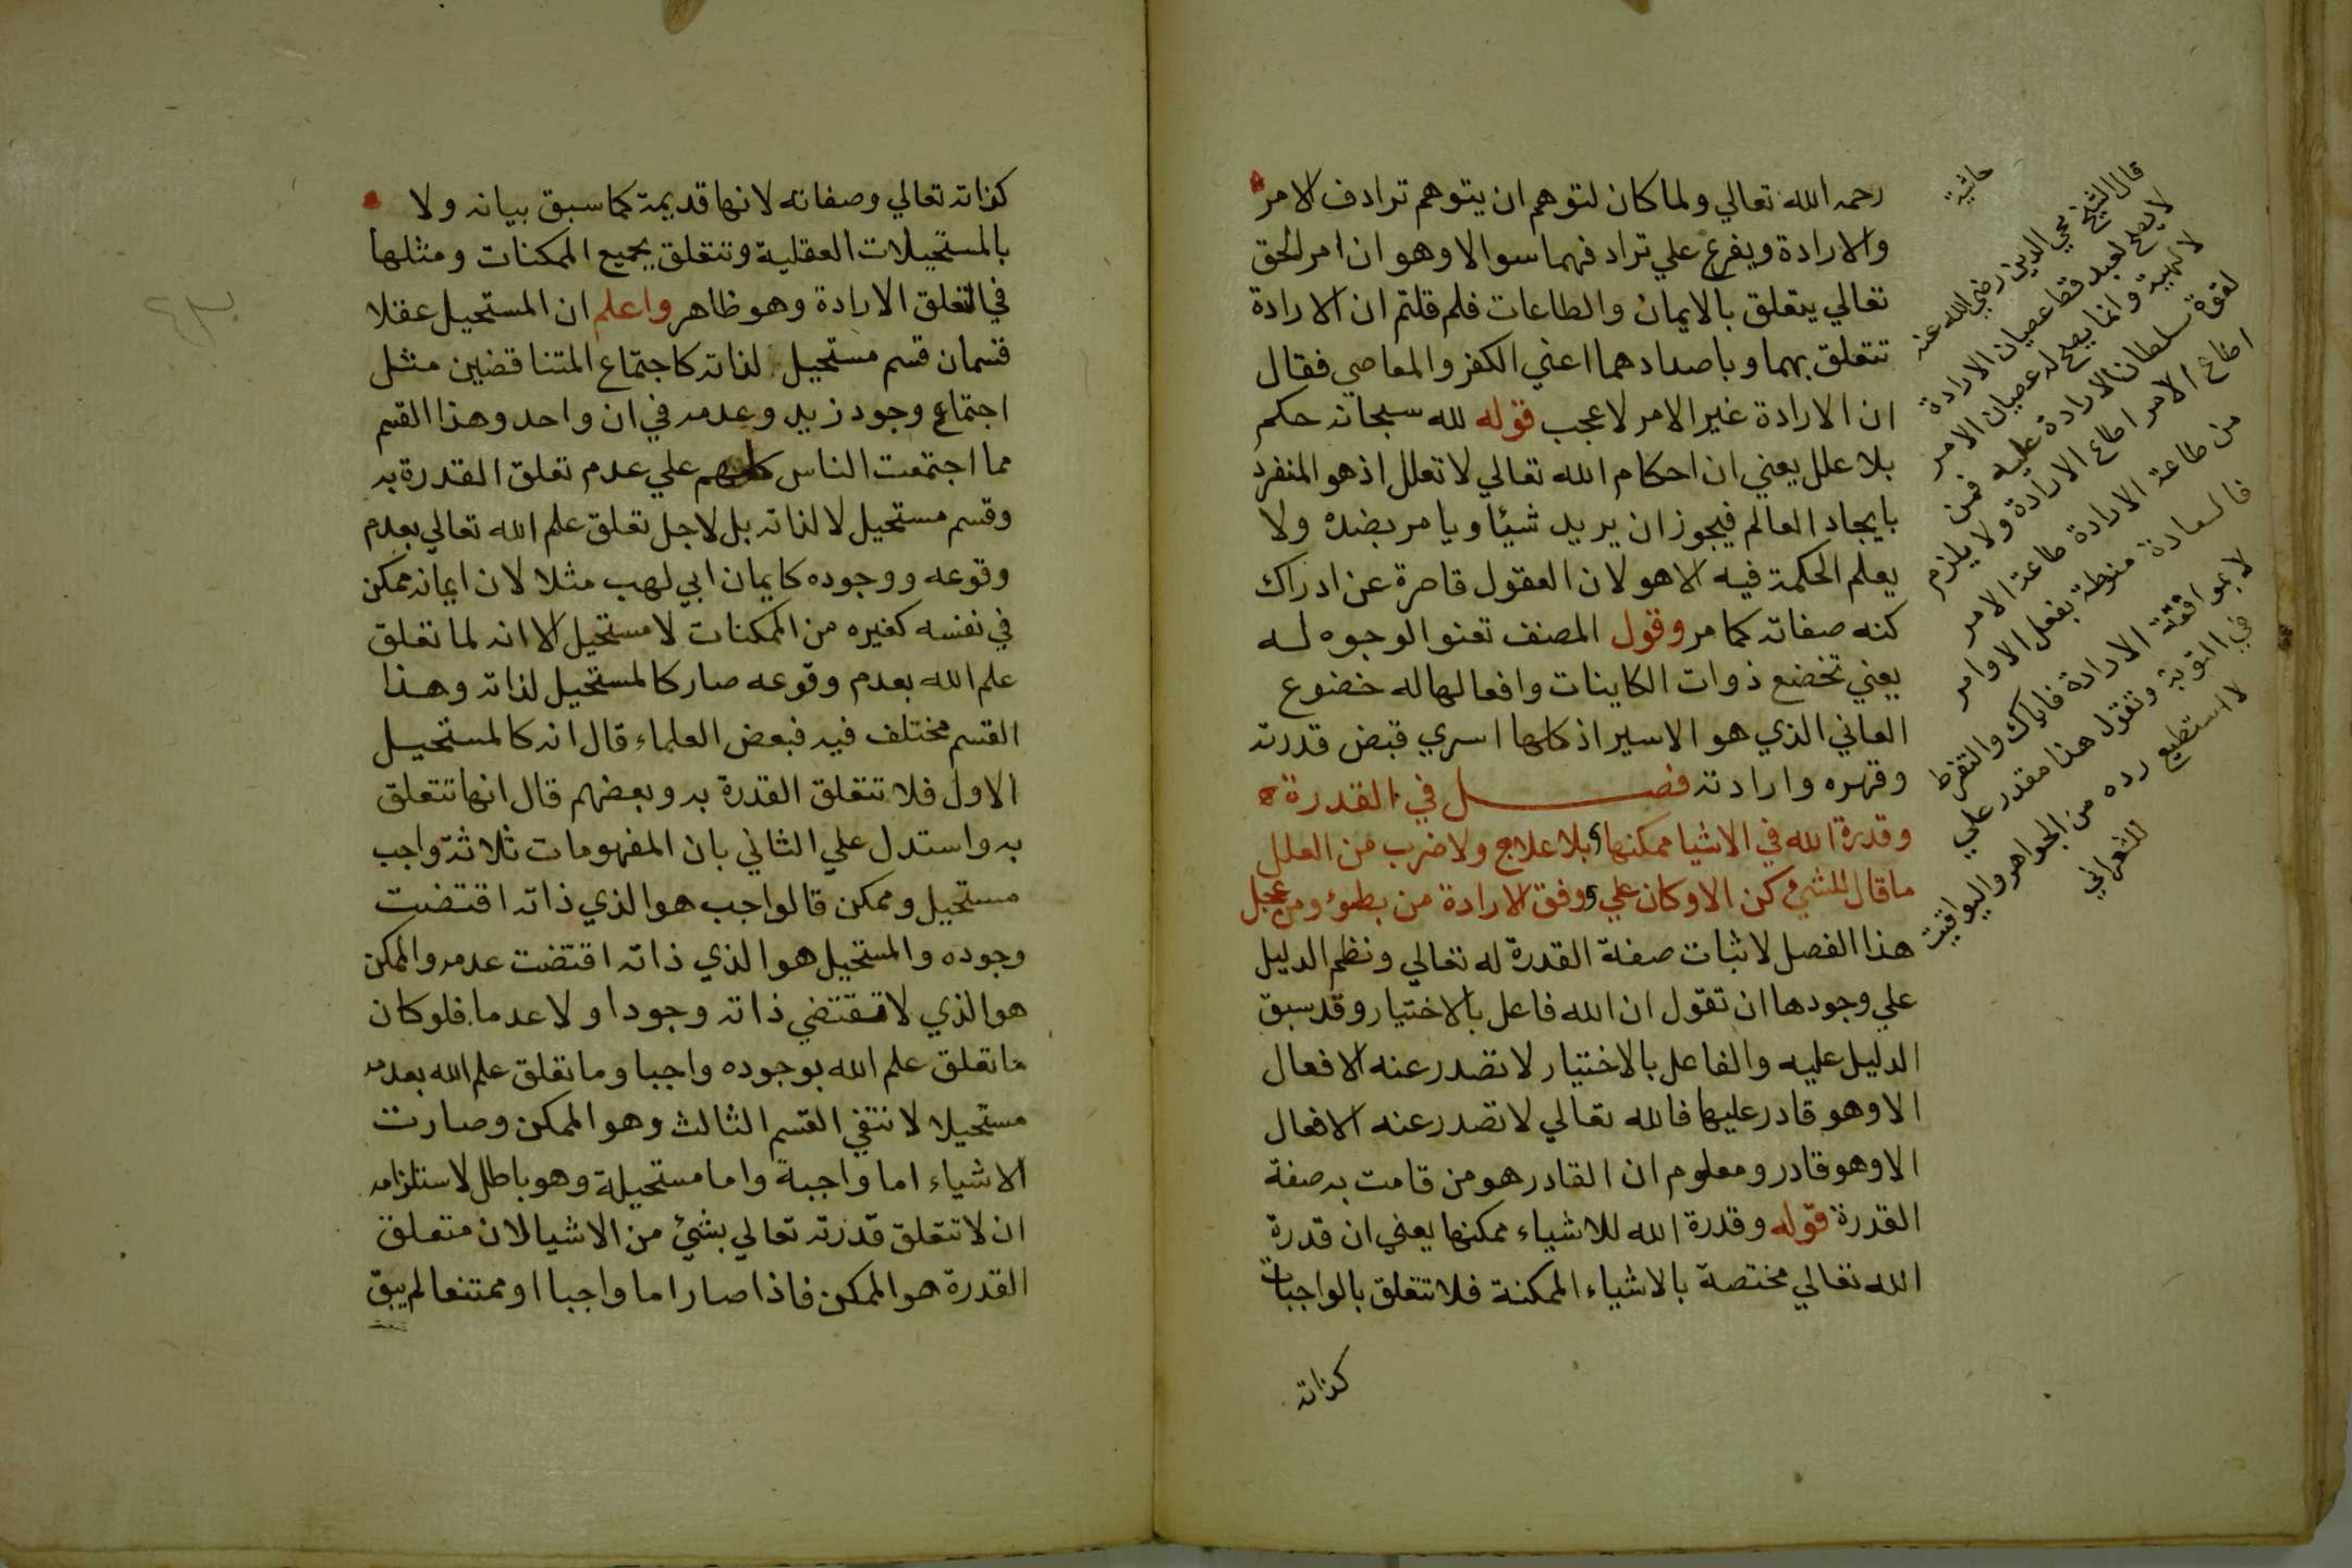 رحمه الله تعالي ولما كان لتوهم ان يتوهم ترادف الامر
والارادة ويفرع علي ترادفهما سوالا وهو ان امر الحق
تعالي يتعلق بالايمان والطاعات فلم قلتم ان الارادة
تتعلق بهما وباضدادهما اعني الكفر والمعاصي فقال
ان الارادة غير الامر لا عجب قوله لله سبحانه حكم
بلا علل يعني ان احكام الله تعالي لا تعلل اذ هو المنفرد
بايجاد العالم فيجوز ان يريد شيئا ويامر بضده ولا
يعلم الحكمة فيه الا هو لان العقول قاصرة عن ادراك
كنه صفاته كما مر وقول المصنف تعنوا الوجوه له
يعني تخضع ذوات الكاينات وافعالها له خضوع
العاني الذي هو الاسير اذ كلها اسري قبض قدرته
وقهره وارادته فصل في القدرة
وقدرة الله في الاشيا ممكنها وبلا علاج ولا ضرب من العلل
ما قال للشيء كن الا وكان علي ووفق الارادة من بطوء ومن عجل
هذا الفصل لاثبات صفة القدرة له تعالي ونظم الدليل
علي وجودها ان تقول ان الله فاعل بالاختيار وقد سبق
الدليل عليه والفاعل بالاختيار لا تصدر عنه الافعال
الا وهو قادر عليها فالله تعالي لا تصدر عنه الافعال
الا وهو قادر ومعلوم ان القادر هو من قامت به صفة
القدرة قوله وقدرة الله للاشياء ممكنها يعني ان قدرة
الله تعالي مختصة بالاشياء الممكنة فلا تتعلق بالواجبات
كذاته
حاشية
قال الشيخ محي الدين رضي الله عنه
لا يصح لعبد قط عصيان الارادة
الالهية وانما يصح له عصيان الامر
لقوة سلطان الارادة عليه فمن
اطاع الامر اطاع الارادة ولا يلزم
من طاعة الارادة طاعة الامر
فالسعادة منوطة بفعل الاوامر
لا بموافقة الارادة فاياك والتفرط
في التوبة وتقول هذا مقدر علي
لا استطيع رده من الجواهر واليواقيت
للشعراني
كذاته تعالي وصفاته لانها قديمة كما سبق بيانه ولا
بالمستحيلات العقلية وتتعلق بجميع الممكنات ومثلها
في التعلق الارادة وهو ظاهر واعلم ان المستحيل عقلا
قسمان قسم مستحيل لذاته كاجتماع المتناقضين مثل
اجتماع وجود زيد وعدمه في ان واحد وهذا القسم
مما اجتمعت الناس كلهم علي عدم تعلق القدرة به
وقسم مستحيل لا لذاته بل لاجل تعلق علم الله تعالي بعدم
وقوعه ووجوده كايمان ابي لهب مثلا لان ايمانه ممكن
في نفسه كغيره من الممكنات لا مستحيل الا انه لما تعلق
علم الله بعدم وقوعه صار كالمستحيل لذاته وهذا
القسم مختلف فيه فبعض العلماء قال انه كالمستحيل
الاول فلا تتعلق القدرة به وبعضهم قال انها تتعلق
به واستدل علي الثاني بان المفهومات ثلاثة واجب
مستحيل وممكن فالواجب هو الذي ذاته اقتضت
وجوده والمستحيل هو الذي ذاته اقتضت عدمه والممكن
هو الذي لا تقتضي ذاته وجودا ولا عدما فلو كان
ما تعلق علم الله بوجوده واجبا وما تعلق علم الله بعدمه
مستحيلا لانتفي القسم الثالث وهو الممكن وصارت
الاشياء اما واجبة واما مستحيلة وهو باطل لاستلزامه
ان لا تتعلق قدرته تعالي بشيء من الاشيا لان متعلق
القدرة هو الممكن فاذا صار اما واجبا او ممتنعا لم يبق